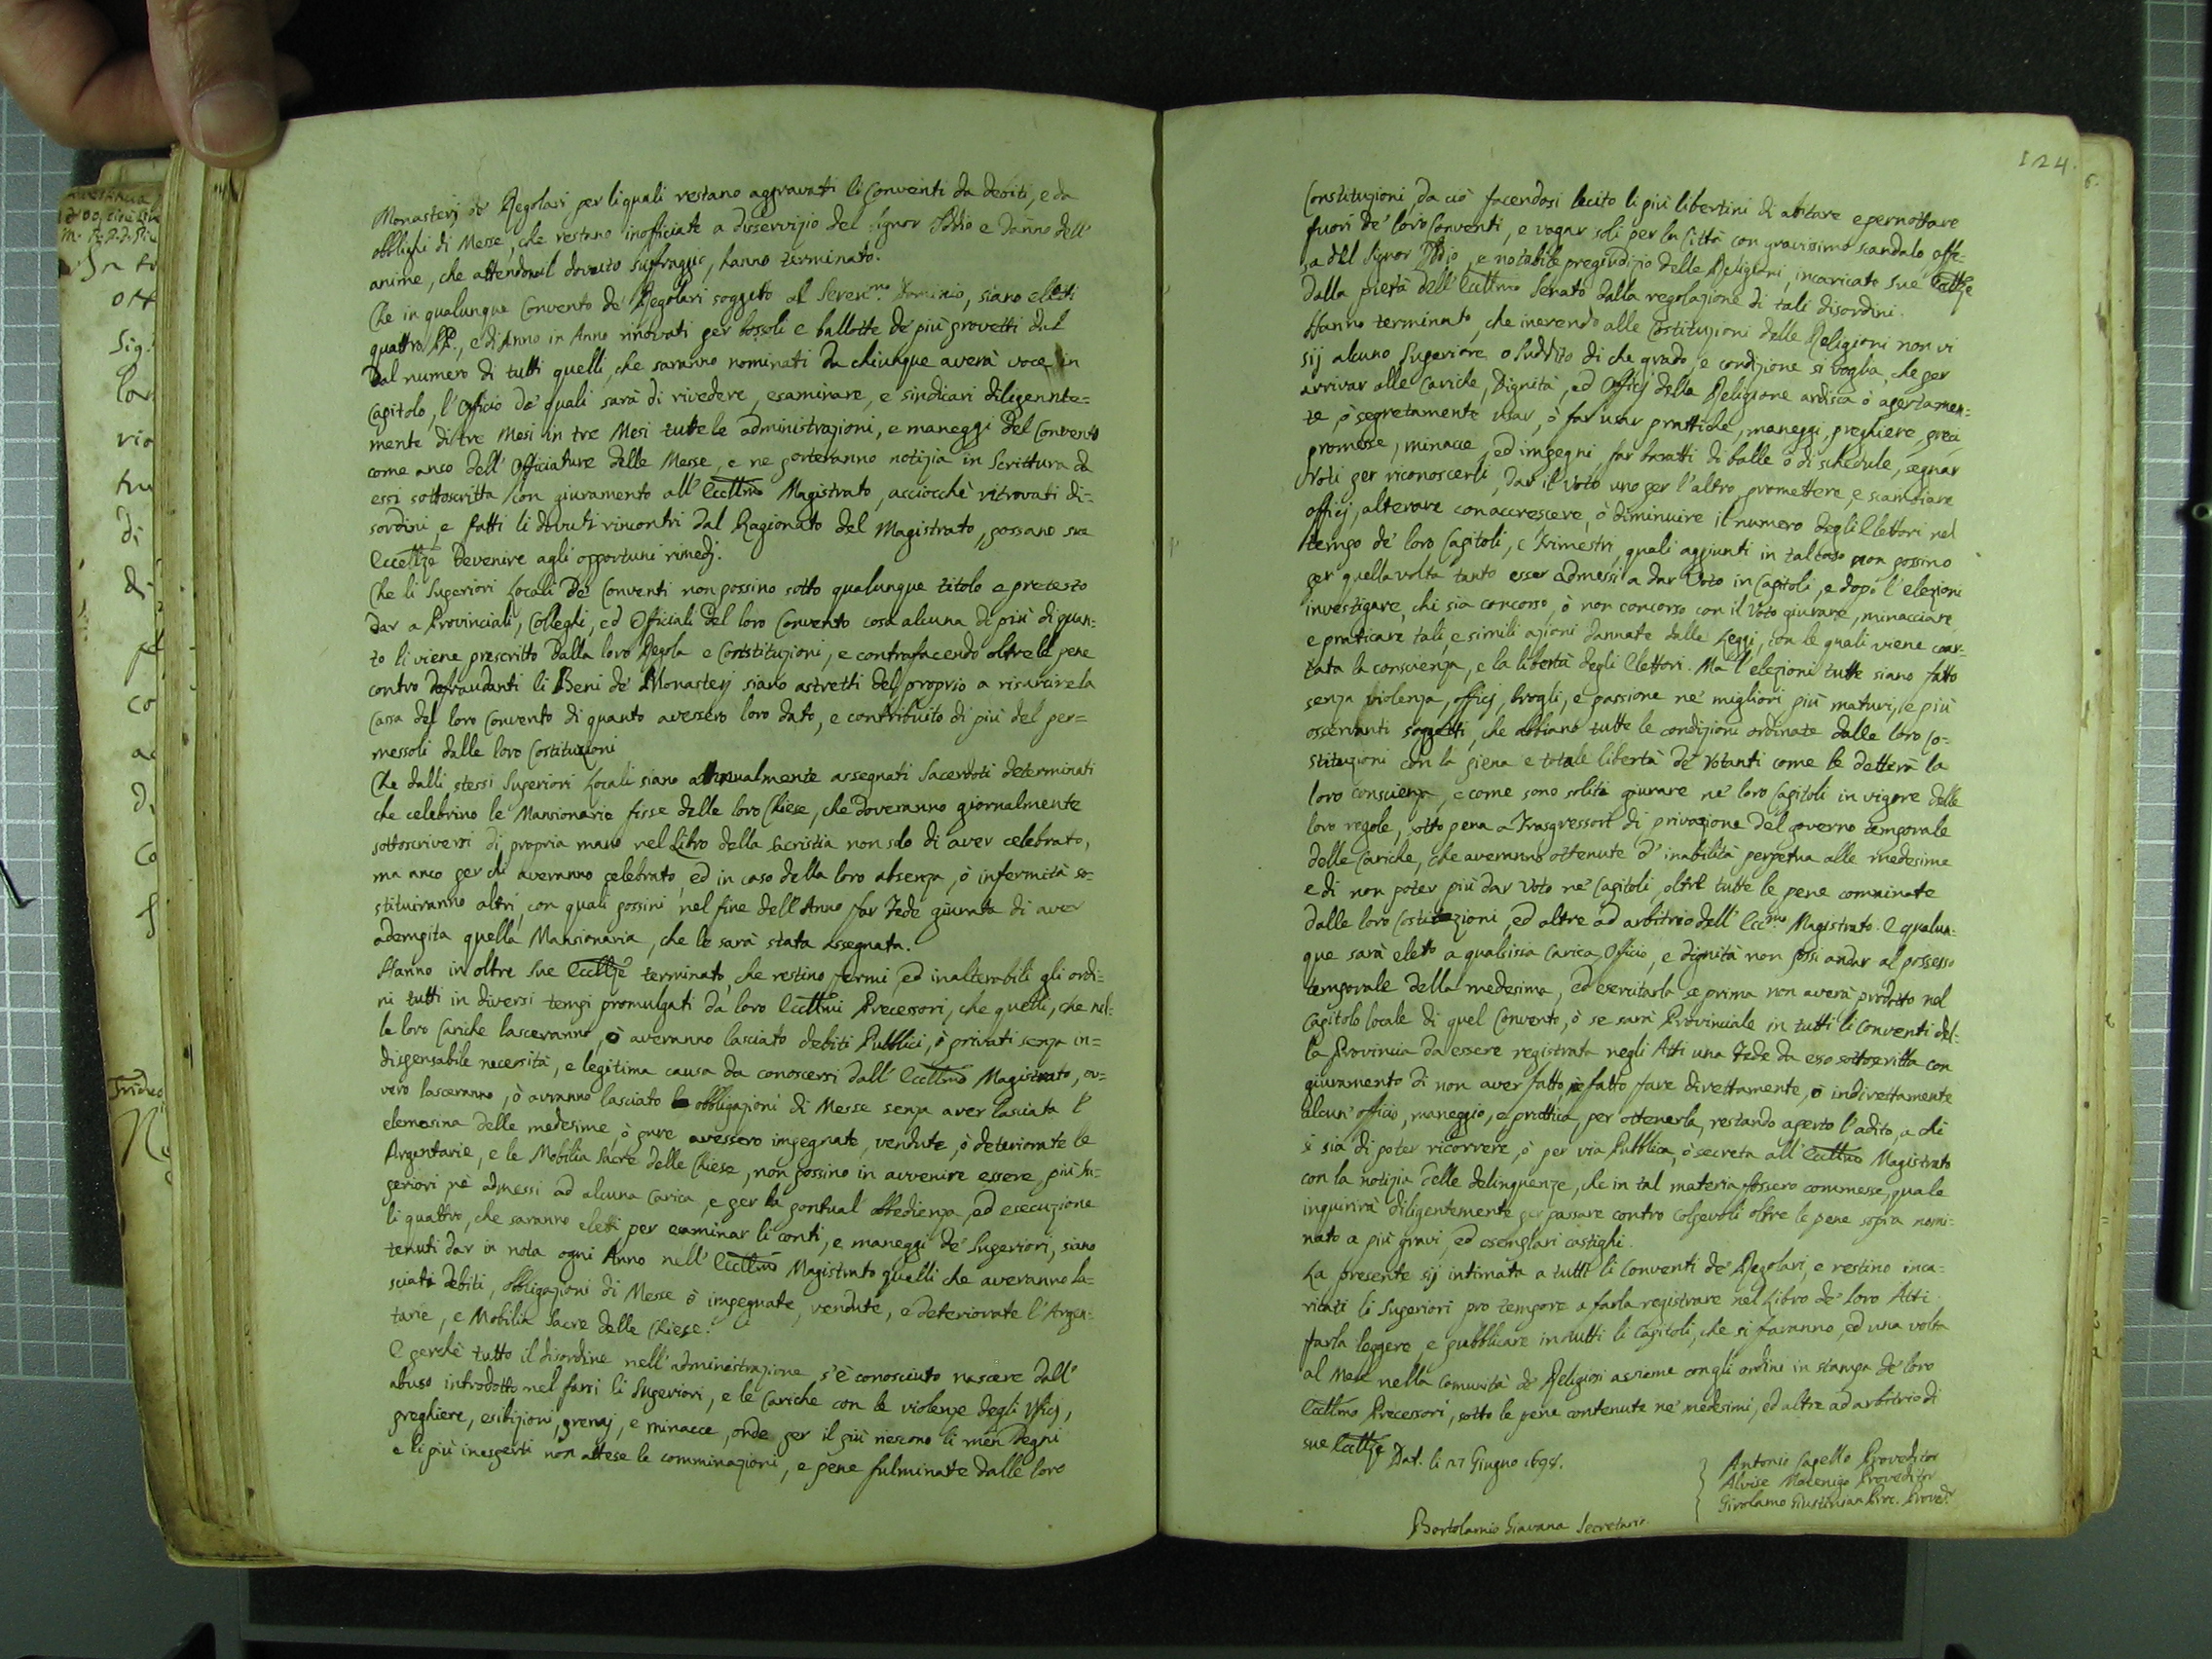 Monasterj de' Regolari per li quali restano aggravati li Conventi da debiti, e da
obblighi di Messe, che restano inofficiate a disservizio del Signor Iddio e danno dell'
anime, che attendono il dovuto suffragio, hanno terminato.
Che in qualunque Convento de' Regolari soggetto al Seren.mo Dominio, siano eletti
quattro PP., e di Anno in Anno rinovati per bossoli e ballotte de' più provetti dal
dal numero di tutti quelli, che saranno nominati da chiunque averà voce in
Capitolo, l'Officio de' quali sarà di rivedere, esaminare, e sindicar diligennte=
mente di tre Mesi in tre Mesi tutte le administrazioni, e maneggi del Convento
come anco dell'Officiature delle Messe, e ne porteranno notizia in Scrittura da
essi sottoscritta con giuramento all'Ecctmo Magistrato, acciocchè ritrovati di=
sordini, e fatti li dovuti rincontri dal Ragionato del Magistrato, possano sue
Eccettze devenire agli opportuni rimedj.
Che li Superiori Locali de' Conventi non possino sotto qualunque titolo e pretesto
dar a Provinciali, Colleghi, ed Officiali del loro Convento cosa alcuna di più di quan=
to li viene prescritto dalla loro Regola e Constituzioni, e contrafacendo oltre le pene
contro defraudanti li Beni de' Monasterj siano astretti del proprio a risarcire la
Cassa del loro Convento di quanto avessero loro dato, e contribuito di più del per=
messoli dalle loro Costituzioni
Che dalli stessi Superiori Locali siano annualmente assegnati Sacerdoti determinati
che celebrino le Mansionarie fisse delle loro Chiese, che doveranno giornalmente
sottoscriversi di propria mano nel Libro della Sacristia non solo di aver celebrato,
ma anco per chi averanno celebrato, ed in caso della loro absenza, ò infermità so=
stituiranno altri, con quali possini nel fine dell'Anno far Fede giurata di aver
adempita quella Mansionaria, che le sarà stata assegnata.
Hanno in oltre Sue Ecctze terminato, che restino fermi, ed inalterabili gli ordi=
ni tutti in diversi tempi promulgati da loro Ecctmi Precessori, che quelli, che nel=
le loro Cariche lasceranno, ò averanno lasciato debiti Pubblici, ò privati senza in=
dispensabile necessità, e legitima causa da conoscersi dall'Ecctmo Magistrato, ov=
vero lasceranno, ò avranno lasciato obbligazioni di Messe senza aver lasciata l'
elemosina delle medesime, ò pure avessero impegnate, vendute, ò deteriorate le
Argentarie, e le Mobilia Sacre delle Chiese, non possino in avvenire essere più Su=
periori nè admessi ad alcuna Carica, e per la pontual obbedienza, ed esecuzione
li quattro, che saranno eletti per examinar li conti, e maneggi de' Superiori, siano
tenuti dar in nota ogni Anno nell'Ecctmo Magistrato quelli che averanno la=
sciati debiti, obbligazioni di Messe ò impegnate, vendute, e deteriorate l'Argen=
tarie, e Mobilia Sacre delle Chiese.
E perchè tutto il disordine nell'administrazione s'è conosciuto nascere dall'
abuso introdotto nel farsi li Superiori, e le Cariche con le violenze degli Vfficj,
preghiere, esibizioni, premj, e minacce, onde per il più riescono li men degni
e li più inesperti non attese le comminazioni, e pene fulminate dalle loro
124.
Constituzioni, da ciò facendosi lecito li più libertini di abitare e pernottare
fuori de' loro Conventi, e vagar soli per la Città con gravissimo scandalo offe=
sa del Signor Iddio, e notabile pregiudizio delle Religioni, incaricato Sue Ecctze
dalla pietà dell'Ecctmo Senato dalla regolazione di tali disordini.
Hanno terminato, che inerendo alle Costituzioni delle Religioni non vi
sij alcuno Superiore o Suddito di che grado, e condizione si voglia, che per
arrivar alle Cariche, Dignità, ed Officj della Religione ardisca ò apertamen=
te, ò segretamente usar, ò far usar prattiche, maneggi, preghiere, preci
promesse, minacce, ed impegni far baratti di balle ò di schedule, segnar
Voti per riconoscerli, dar il Voto uno per l'altro, promettere, e scambiare
officj, alterare con accrescere, ò diminuire il numero degli Elettori nel
tempo de' loro Capitoli, e Trimestri, quali aggiunti in tal caso non possino
per quella volta tanto esser admessi a dar Voto in Capitoli, e dopo l'elezioni
investigare, chi sia concorso, ò non concorso con il Voto giurare, minacciare,
e praticare tali, e simili azioni dannate dalle Leggi, con le quali viene coar=
tata la conscienza, e la libertà degli Elettori. Ma l'elezioni tutte siano fatto
senza violenza, officj, brogli, e passione ne' migliori più maturi, e più
osservanti soggetti, che abbiano tutte le condizioni ordinate dalle loro Co=
stituzioni con la piena e totale libertà de' Votanti come le detterà la
loro conscienza, e come sono soliti giurare ne' loro Capitoli in vigore delle
loro regole, sotto pena a Trasgressori di privazione del governo temporale
delle Cariche, che averanno ottenute d'inabilità perpetua alle medesime
e di non poter più dar Voto ne' Capitoli, oltre tutte le pene cominate
dalle loro Costituzioni, ed altre ad arbitrio dell'Ecc.mo Magistrato. E qualun=
que sarà eletto a qualsisia Carica, Officio, e dignità non possi andar al possesso
temporale della medesima, ed esercitarla, se prima non averà prodotto nel
Capitolo locale di quel Convento, ò se sarà Provinciale in tutti li Conventi del=
la Provincia da essere registrata negli Atti una Fede da esso sottoscritta con
giuramento di non aver fatto, ò fatto fare direttamente, ò indirettamente
alcun'officio, maneggio, e prattica, per ottenerla, restando aperto l'adito, a chi
si sia di poter ricorrere, ò per via Pubblica, ò secreta all'Ecctmo Magistrato
con la notizia delle delinquenze, che in tal materia fossero commesse, quale
inquirirà diligentemente per passare contro Colpevoli oltre le pene sopra nomi=
nato a più gravi, ed esemplari castighi.
La presente sij intimata a tutti li Conventi de' Regolari, e restino inca=
ricati li Superiori pro tempore a farla registrare nel Libro de' loro Atti
farla leggere, e pubblicare in tutti li Capitoli, che si faranno, ed una volta
al Mese nella Comunità de' Religiosi assieme con gli ordini in stampa de' loro
Ecctmo Precessori, sotto le pene contenute ne' medesimi, ed altre ad arbitrio di
sue Ecctze Dat. li 27 Giugno 1698.
Antonio Capello Proveditor
Alvise Mocenigo Proveditor
Girolamo Giustinian Proc. Proved.r
Bortolamio Giavana Secretario.